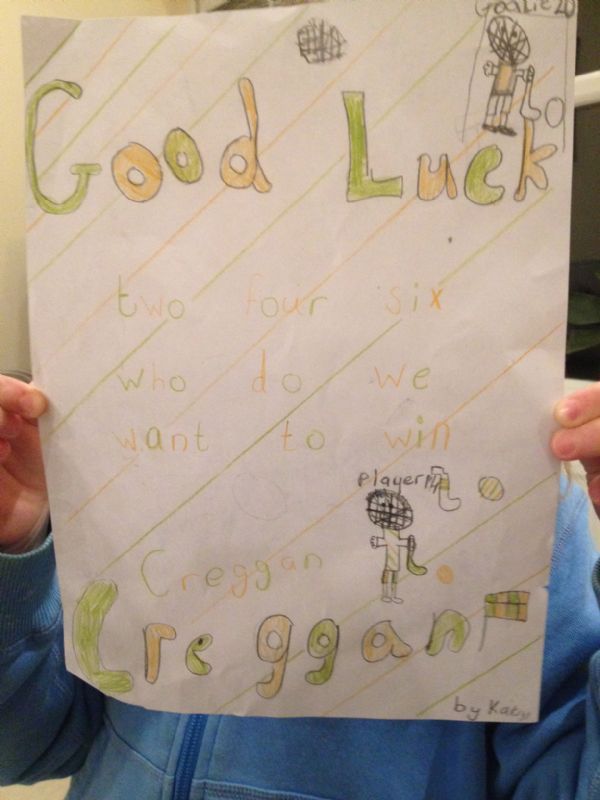 Goalie 20
Good Luck
two four six
who do we
want to win
player 14
Creggan
Creggan
by Katy